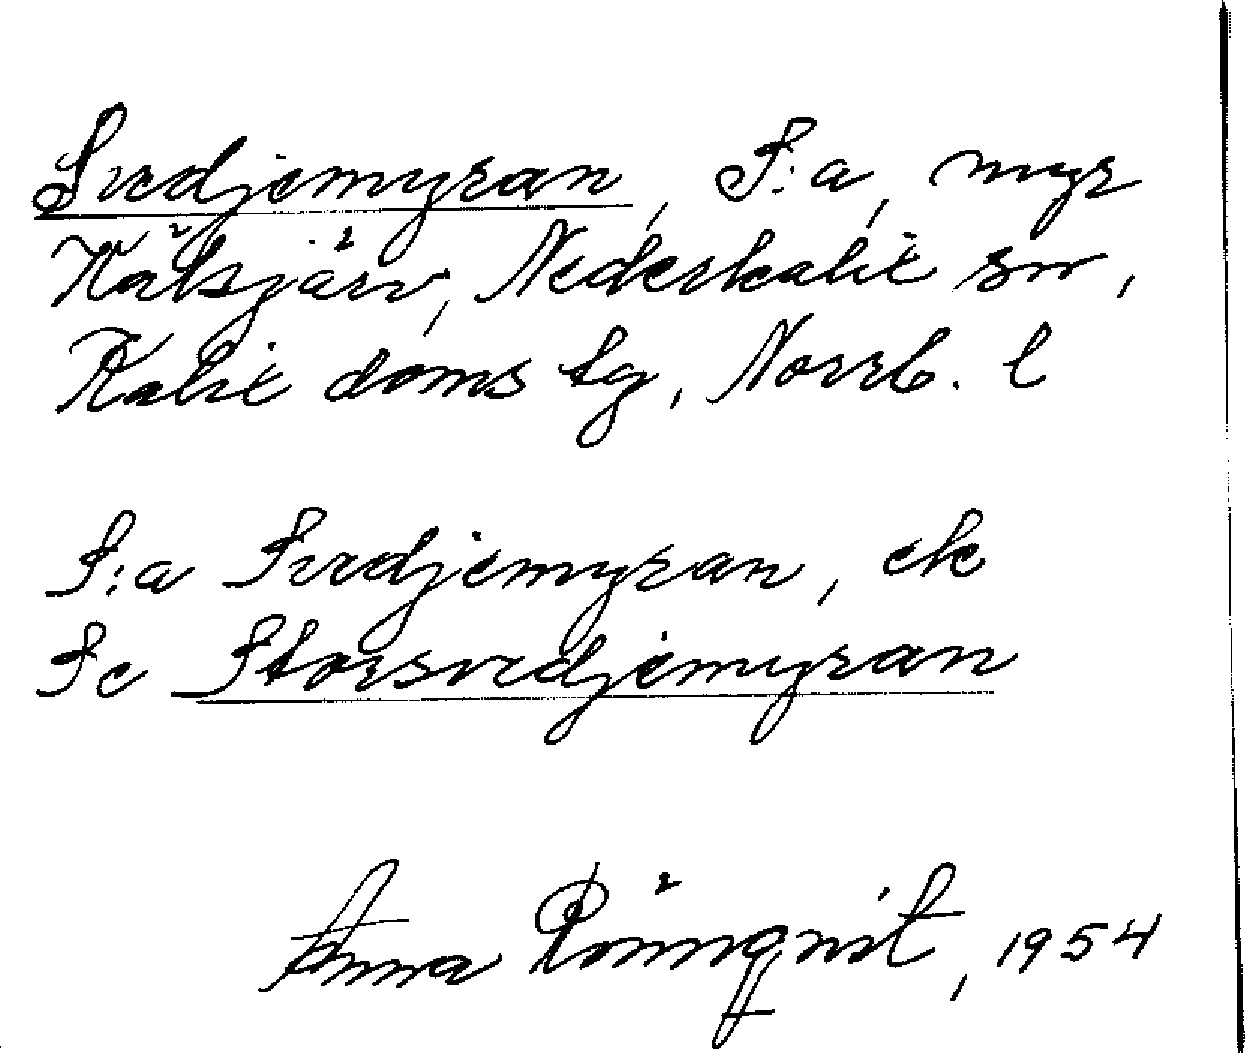 Svedjemyran, S:a, myr
Kälsjärv, Nederkalix sn,
Kalix doms tg, Norrb. l
S:a Svedjemyran, ek
Se Storsvedjemyran
Anna Rönnqvist, 1954